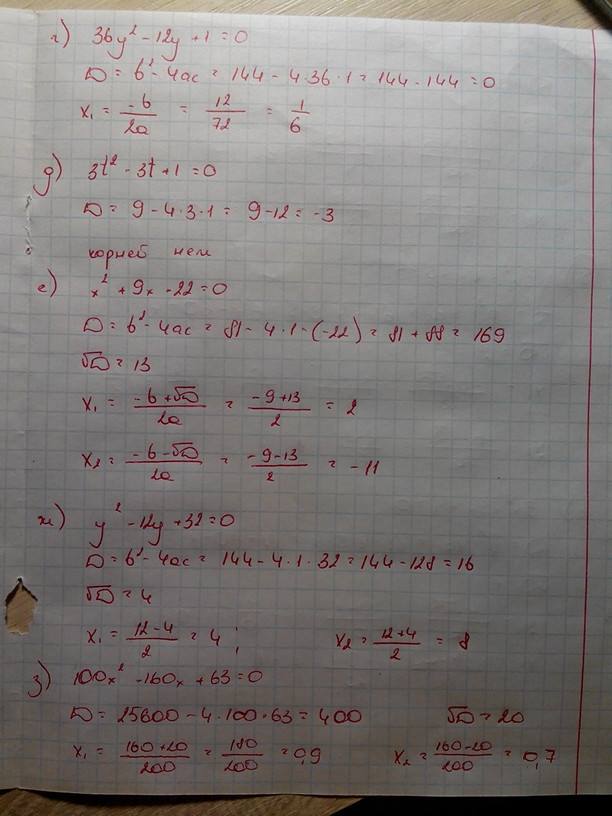 г) 36y² - 12y + 1 = 0
D = b² - 4ac = 144 - 4·36·1 = 144 - 144 = 0
x₁ = -b/2a = 12/72 = 1/6
д) 3t² - 3t + 1 = 0
D = 9 - 4·3·1 = 9 - 12 = -3
корней нет
е) x² + 9x - 22 = 0
D = b² - 4ac = 81 - 4·1-(-22) = 81 + 88 = 169
√D = 13
x₁ = (-b + √D)/2a = (-9 + 13)/2 = 2
x₂ = (-b - √D)/2a = (-9 - 13)/2 = -11
ж) y² - 12y + 32 = 0
D = b² - 4ac = 144 - 4·1·32 = 144 - 128 = 16
√D = 4
x₁ = (12 - 4)/2 = 4 ; x₂ = (12 + 4)/2 = 8
з) 100x² - 160x + 63 = 0
D = 25600 - 4·100·63 = 400 √D = 20
x₁ = (160 + 20)/200 = 180/200 = 0,9 x₂ = (160 - 20)/200 = 0,7